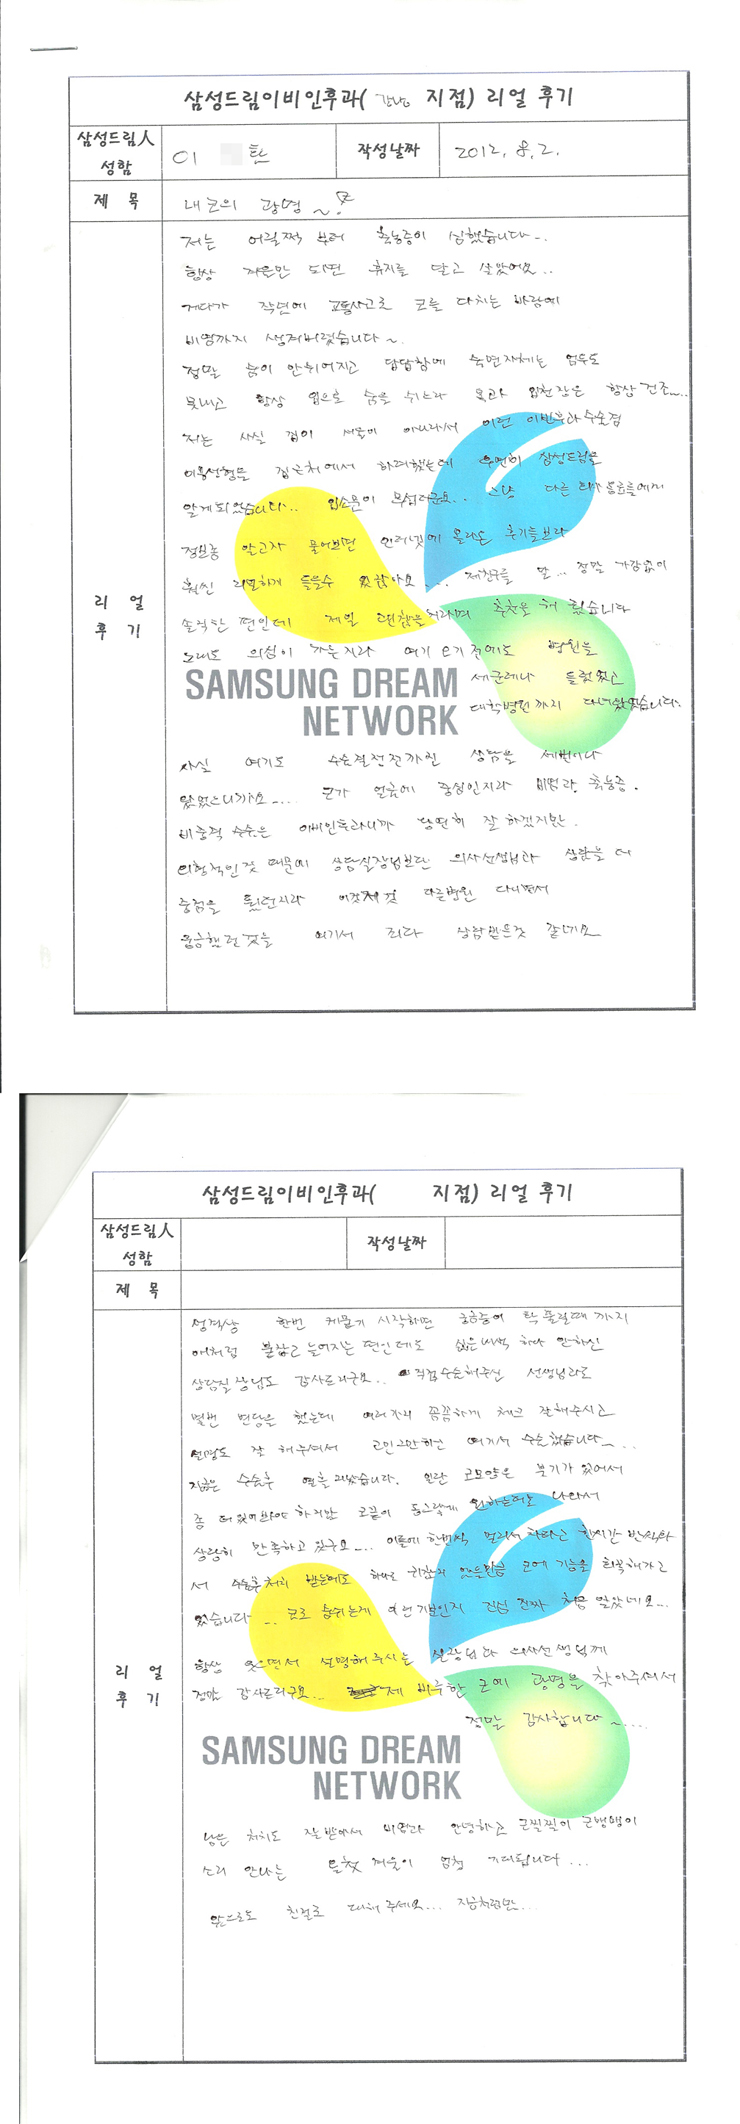 삼성드림이비인후과( 강남 지점) 리얼 후기
삼성드림人 성함
이 탄
작성날짜
2012. 8. 2.
제 목
내 코의 광명 ~!
리 얼 후 기
저는 어릴쩍 부터 축농증이 심했습니다~.
항상 겨울만 되면 휴지를 달고 살았어요..
게다가 작년에 교통사고로 코를 다치는 바람에
비염까지 생겨버렸습니다~.
정말 숨이 안쉬어지고 답답함에 숙면자체는 엄두도
못내고 항상 입으로 숨을 쉬느라 목과 입천장은 항상 건조....
저는 사실 집이 서울이 아니라서 이런 이비인후과수술겸
미용성형을 집근처에서 하려했는데 우연히 삼성드림을
알게되었습니다.. 입소문이 무섭더군요.. 그냥 다른
정보통 알고자 물어보면 인터넷에 올라온 후기들보다
훨씬 리얼하게 들을수 있잖아요.... 제친구들 말... 정말 가감없이
솔직한 편인데 제일 괜찮을꺼라며 추천을 해 줬습니다
그래도 의심이 가는지라 여기 오기전에도 병원을
세군데나 들렸었고
대학병원까지 다녀왔었습니다.
SAMSUNG DREAM
NETWORK
사실 여기도 수술결정전까진 상담을 세번이나
왔었으니까요.... 코가 얼굴에 중심인지라 비염과 축농증.
비중격 수술은 이비인후과니까 당연히 잘 하겠지만.
의학적인것 때문에 상담실장님보단 의사선생님과 상담을 더
중점을 뒀던지라 이것저것 다른병원 다니면서
궁금했던것을 여기서 죄다 상담받은것 같네요
삼성드림이비인후과( 지점) 리얼 후기
삼성드림人 성함
작성날짜
제 목
리 얼 후 기
성격상 한번 캐묻기 시작하면 궁금증이 탁 풀릴때 까지
애처럼 붙잡고 늘어지는 편인데도 싫은내색 하나 안하신
상담실장님도 감사드리구요.. 직접수술해주신 선생님과도
몇번 면담을 했는데 여러가지 꼼꼼하게 체크 잘해주시고
설명도 잘 해주셔서 고민그만하고 여기서 수술했습니다~...
지금은 수술후 열흘 되었습니다. 일단 코모양은 붓기가 있어서
좀 더 있어봐야 하지만 코끝이 동그랗게 원하는대로 나와서
상당히 만족하고 있구요.... 이틀에 한번씩 멀리서 차타고 한시간 반씩와
서 수술후처치 받는데도 하나도 귀찮지 않을만큼 코에 기능을 회복해가고
있습니다.... 코로 숨쉬는게 이런기분인지 진심 진짜 처음 알았네요...
항상 웃으면서 설명해주시는 실장님과 의사선생님께
정말 감사드리구요... 제 비루한 코에 광명을 찾아주셔서
정말 감사합니다~....
SAMSUNG DREAM
NETWORK
남은 처치도 잘받아서 비염과 안녕하고 코찔찔이 코맹맹이
소리 안나는 겨울이 엄청 기대됩니다...
앞으로도 친절로 대해 주세요... 지금처럼만...